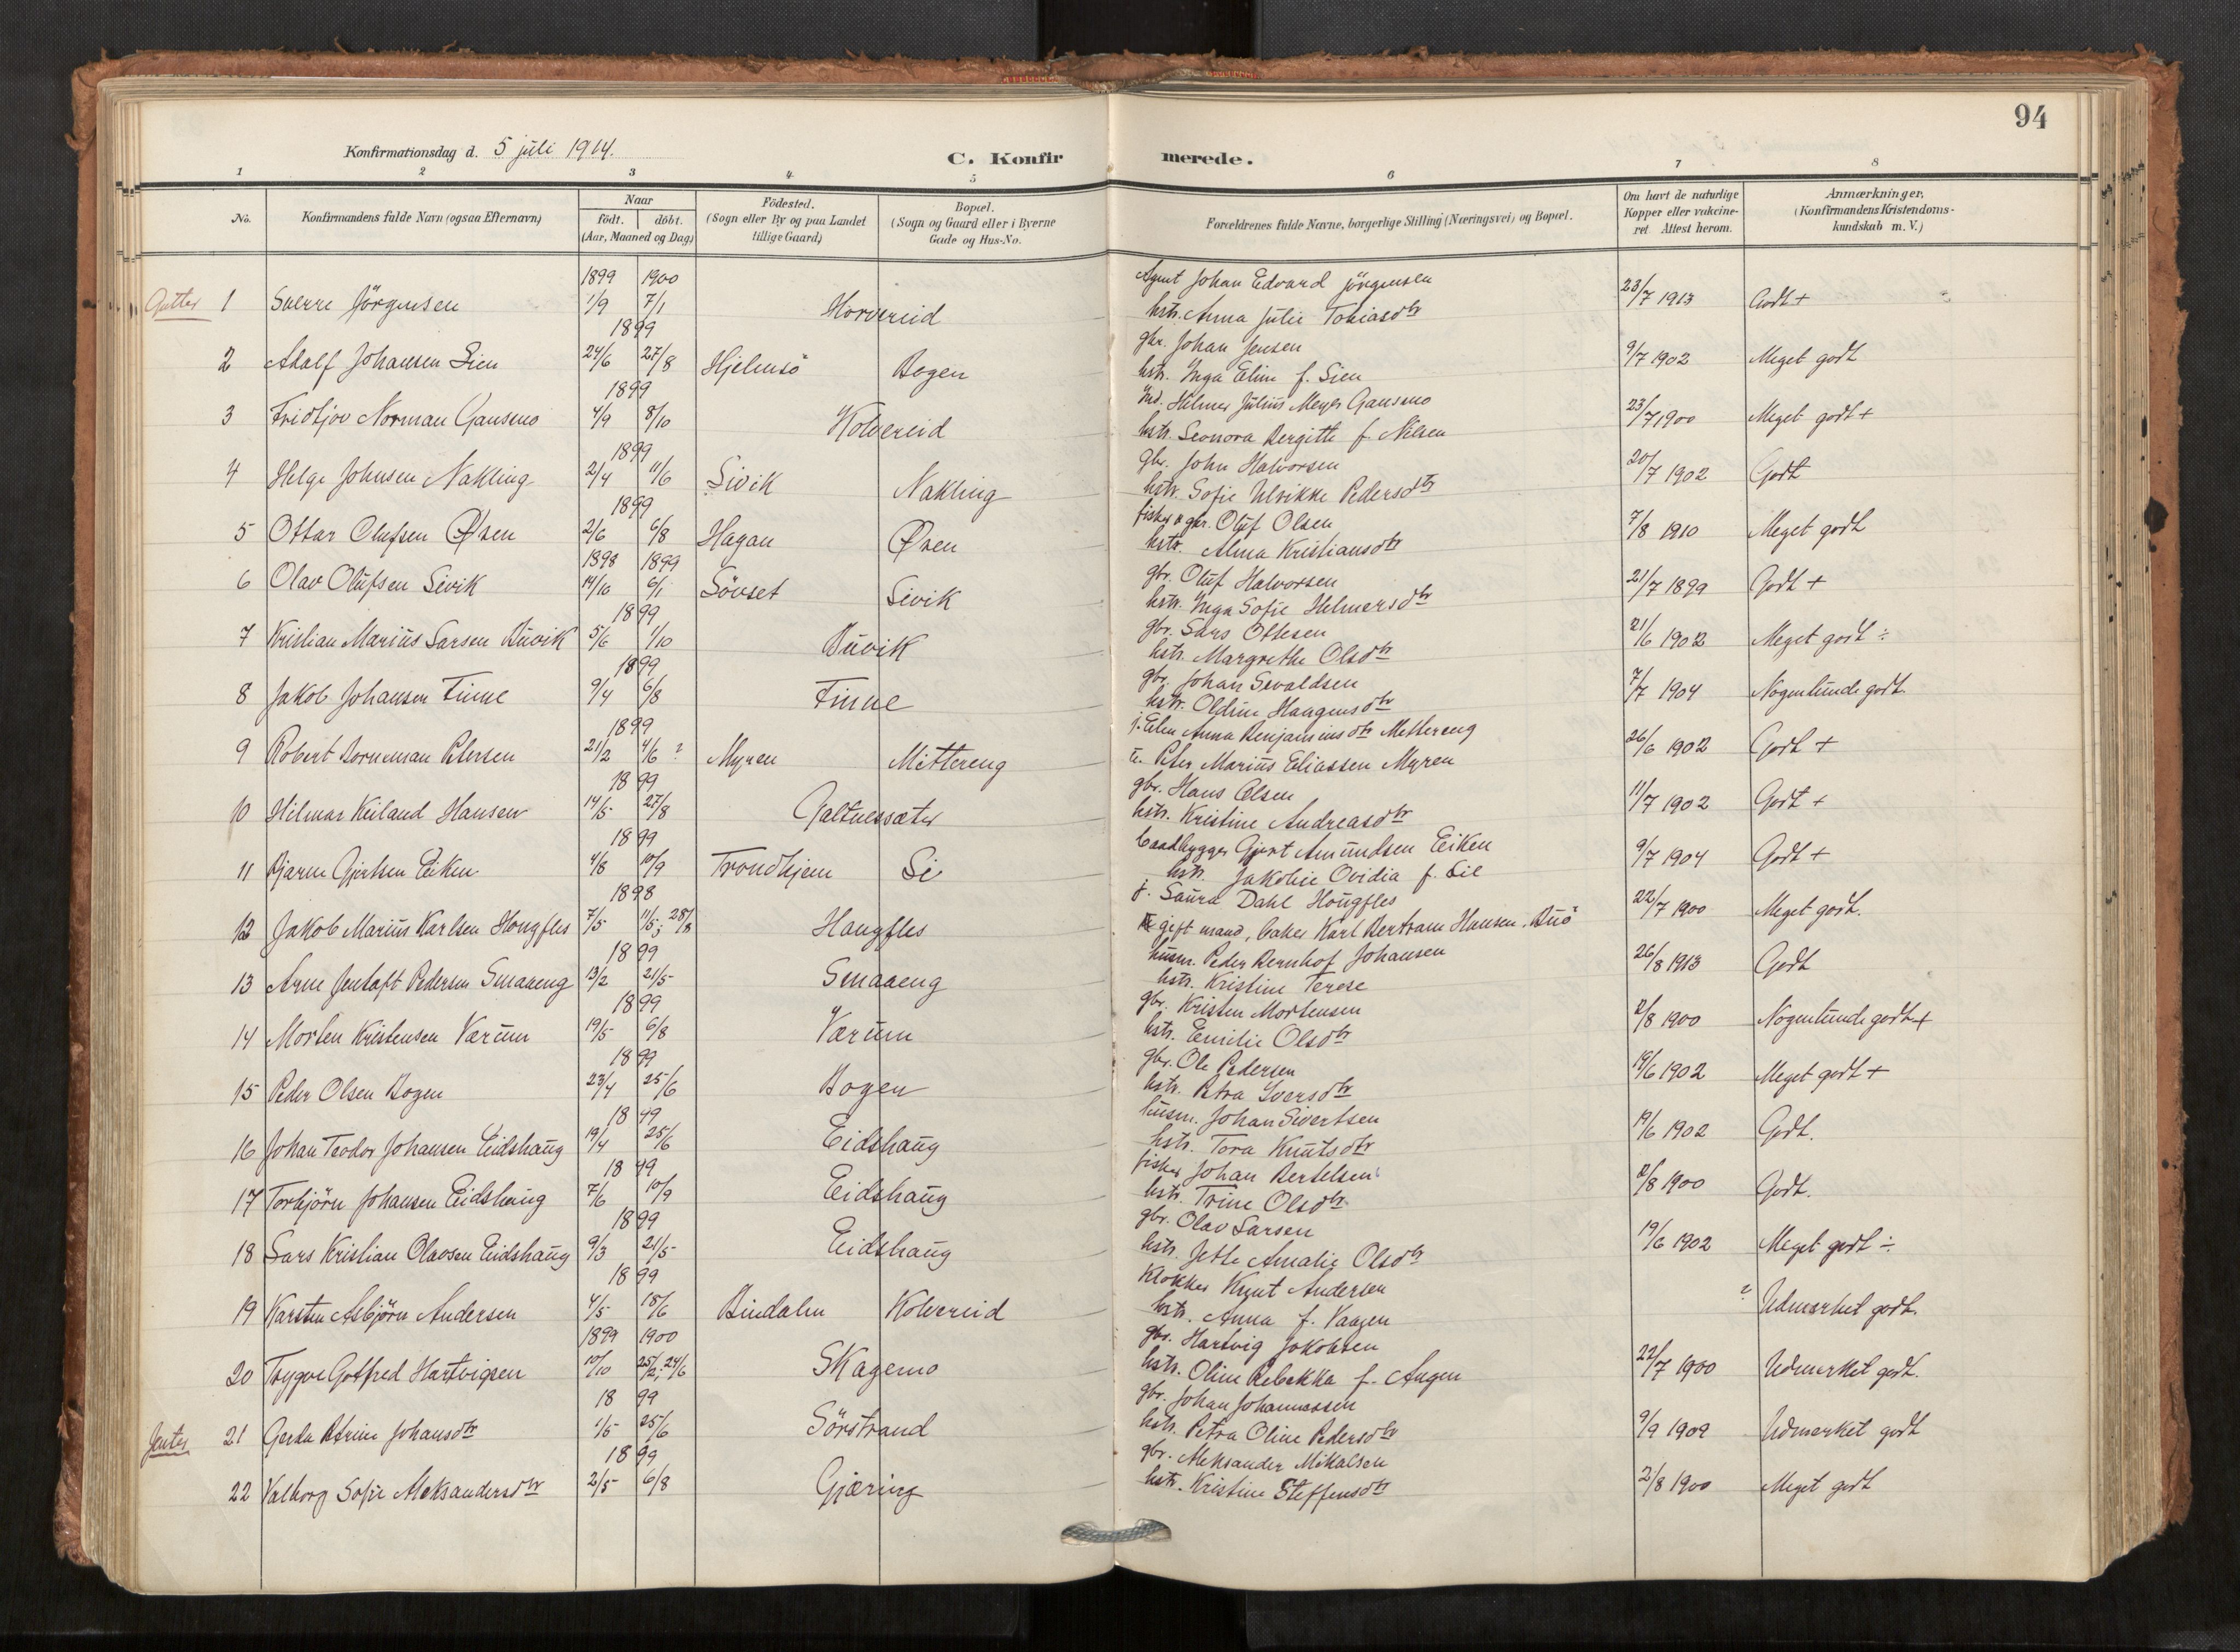 94
Konfirmationsdag d. 5 juli 1914.
C. Konfirmerede.
1 2 3 4 5 6 7 8
No.
Konfirmandens fulde Navn (ogsaa Efternavn)
Naar
født. döbt.
(Aar, Maaned og Dag)
Födested.
(Sogn eller By og paa Landet
tillige Gaard)
Bopæl.
(Sogn og Gaard eller i Byerne
Gade og Hus-No.
Forældrenes fulde Navne, borgerlige Stilling (Næringsvei) og Bopæl.
Om havt de naturlige
Kopper eller vaccine-
ret. Attest herom.
Anmærkninger,
(Konfirmandens Kristendoms-
kundskab m. V.)
Gutter
1899 1900 Agent Johan Edvard Jörgensen
1 Sverre Jörgensen 1/9 7/1 Horvereid hstr. Anna Julie Tobiasdtr 23/7 1913 Godt +
1899 gbr. Johan Jensen
2 Adolf Johansen Sien 24/6 27/8 Hjelmsö Bogen hstr. Inga Eline f. Sien 9/7 1902 Meget godt
1899 Ind. Hilmer Julius Meyer Gansmo
3 Fridtjov Norman Gansmo 4/9 8/10 Kolvereid hstr. Leonora Bergitte f. Nilsen 23/7 1900 Meget godt +
1899 gbr. John Halvorsen
4 Helge Johnsen Nakling 2/4 11/6 Sivik Nakling hstr. Sofie Ulrikke Pedersdtr 20/7 1902 Godt
1899 fisker & gbr. Oluf Olsen
5 Ottar Olufsen Øren 2/6 6/8 Hagan Øren hstr. Alma Kristiansdtr 7/8 1910 Meget godt
1898 1899 gbr. Oluf Halvorsen
6 Olav Olufsen Sivik 14/10 6/1 Sövset Sivik hstr. Inga Sofie Helmersdtr 21/7 1899 Godt +
1899 gbr. Lars Ottesen
7 Kristian Marius Larsen Buvik 5/6 1/10 Buvik hstr. Margrethe Olsdtr 21/6 1902 Meget godt ÷
1899 gbr. Johan Sivaldsen
8 Jakob Johansen Finne 9/4 6/8 Finne hstr. Oldine Haagensdtr 7/7 1904 Nogenlunde godt.
1899 j. Elen Anna Benjaminsdtr Mittereng
9 Robert Borneman Petersen 21/2 4/6 ? Myren Mittereng u. Peter Marius Eliassen Myren 26/6 1902 Godt +
1899 gbr. Hans Olsen
10 Hilmar Keiland Hansen 14/5 27/8 Galtnessæter hstr. Kristine Andreasdtr 11/7 1902 Godt +
1899 baadbygger Gjert Amundsen Eiken
11 Bjarne Gjertsen Eiken 4/8 10/9 Trondhjem Li hstr. Jakobie Ovidia f. Lie 9/7 1904 Godt +
1898 j. Laura Dahl Hougfles
12 Jakob Marius Karlsen Hougfles 7/5 11/5; 28/8 Haugfles gift mand, baker Karl Bertram Hansen. Buö 22/7 1900 Meget godt.
1899 husm. Peder Bernhof Johansen
13 Arne Jentoft Pedersen Smaaeng 13/2 21/5 Smaaeng hstr. Kristine Terese 26/8 1913 Godt
1899 gbr. Kristen Mortensen
14 Morten Kristensen Værum 19/5 6/8 Værum hstr. Emilie Olsdtr 2/8 1900 Nogenlunde godt +
1899 gbr. Ole Pedersen
15 Peder Olsen Bogen 23/4 25/6 Bogen hstr. Petra Iversdtr 19/6 1902 Meget godt +
1899 husm. Johan Sivertsen
16 Johan Teodor Johansen Eidshaug 19/4 25/6 Eidshaug hstr. Tora Knutsdtr 19/6 1902 Godt.
1899 fisker Johan Bertelsen
17 Torbjörn Johansen Eidshaug 7/6 10/9 Eidshaug hstr. Trine Olsdtr 2/8 1900 Godt.
1899 gbr. Olav Larsen
18 Lars Kristian Olavsen Eidshaug 9/3 21/5 Eidshaug hstr. Jette Amalie Olsdtr 19/6 1902 Meget godt ÷
1899 Klokker Knut Andersen
19 Karsten Asbjörn Andersen 4/5 18/6 Bindalen Kolvereid hstr. Anna f. Vaagen ? Udmerket godt.
1899 1900 gbr. Hartvig Jakobsen
20 Trygve Gotfred Hartvigsen 10/10 25/2; 24/6 Skagemo hstr. Oline Rebekka f. Augen 22/7 1900 Udmerket godt.
Jenter
1899 gbr. Johan Johannessen
21 Gerda Petrine Johansdtr 1/5 25/6 Sörstrand hstr. Petra Oline Pedersdtr 9/9 1902 Udmerket godt
1899 gbr. Aleksander Mikalsen
22 Valborg Sofie Aleksandersdtr 2/5 6/8 Gjæring hstr. Kristine Steffensdtr 2/8 1900 Meget godt